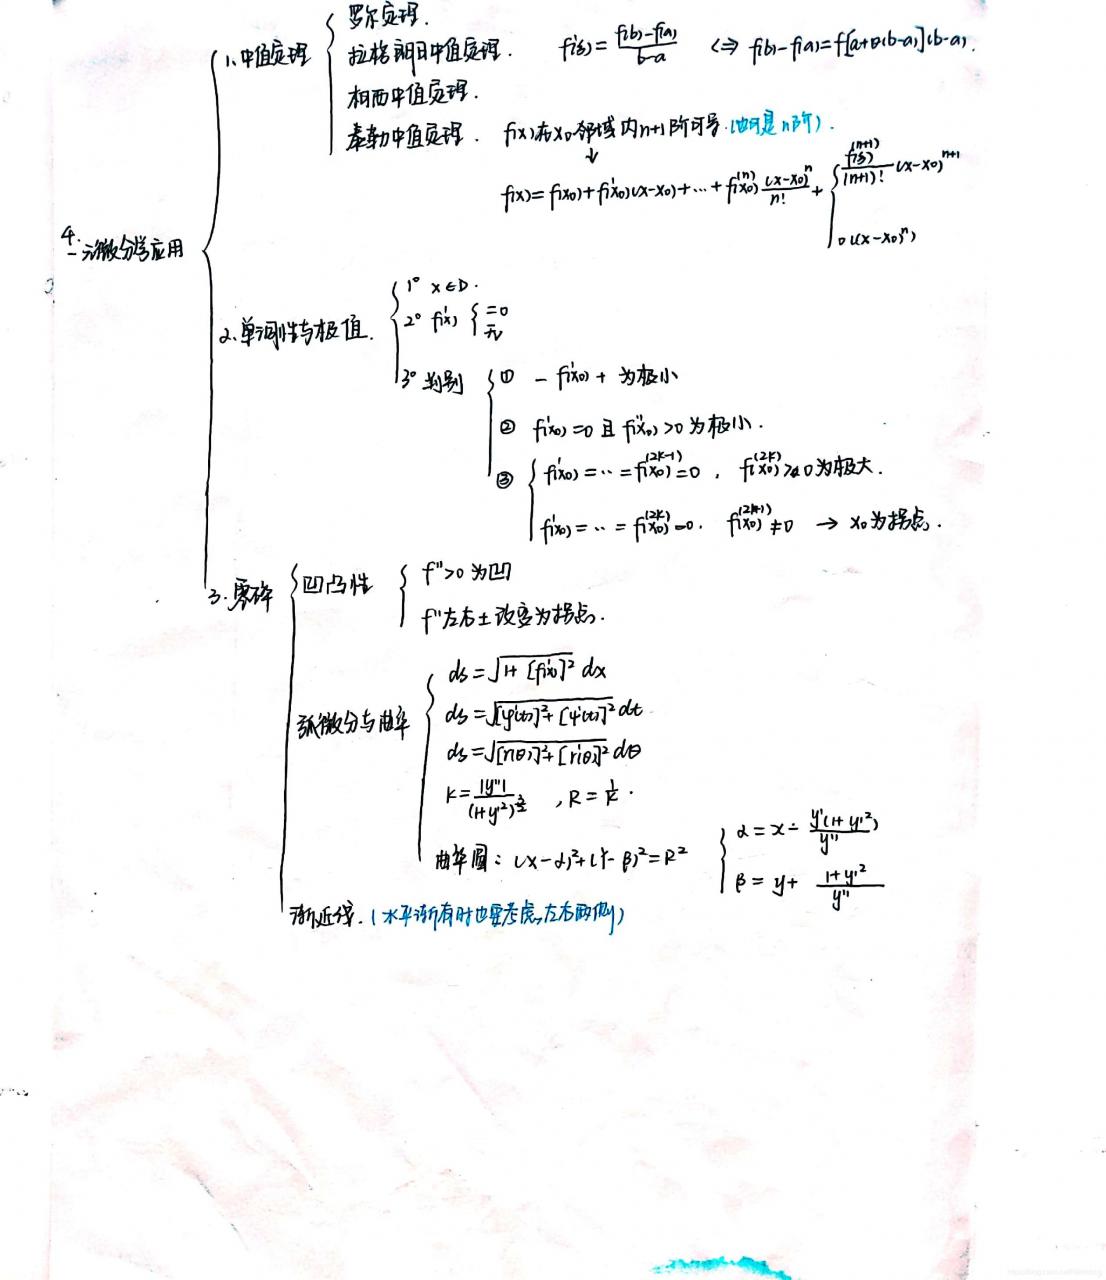 4.
一元微分学应用
1、中值定理
罗尔定理.
拉格朗日中值定理. f'(ξ)=\frac{f(b)-f(a)}{b-a} <=> f(b)-f(a)=f[a+θ(b-a)](b-a).
柯西中值定理.
泰勒中值定理. f(x)在x0邻域内n+1阶可导.(也可是n阶).
↓
f(x)=f(x0)+f'(x0)(x-x0)+…+f^{(n)}(x0)\frac{(x-x0)^n}{n!}+
\frac{f^{(n+1)}(ξ)}{(n+1)!}(x-x0)^{n+1}
o((x-x0)^n)
2.单调性与极值.
1° x∈D.
2° f'(x) {=0
无
3° 判别
① - f'(x0) + 为极小
② f'(x0)=0且f''(x0)>0为极小.
③ f'(x0)=…=f^{(2k-1)}(x0)=0, f^{(2k)}(x0) 0为极大.
f'(x0)=…=f^{(2k)}(x0)=0. f^{(2k+1)}(x0)≠0 → x0为拐点.
3.零碎
凹凸性
f''>0为凹
f''左右±改变为拐点.
弧微分与曲率
ds=\sqrt{1+[f'(x)]^2} dx
ds=\sqrt{[φ'(t)]^2+[ψ'(t)]^2} dt
ds=\sqrt{[r(θ)]^2+[r'(θ)]^2} dθ
K=\frac{|y''|}{(1+y'^2)^{\frac{3}{2}}}, R=\frac{1}{K}.
曲率圆:(x-α)^2+(Y-β)^2=R^2
α=x-\frac{y'(1+y'^2)}{y''}
β=y+\frac{1+y'^2}{y''}
渐近线.(水平渐有时也要考虑左右两侧)